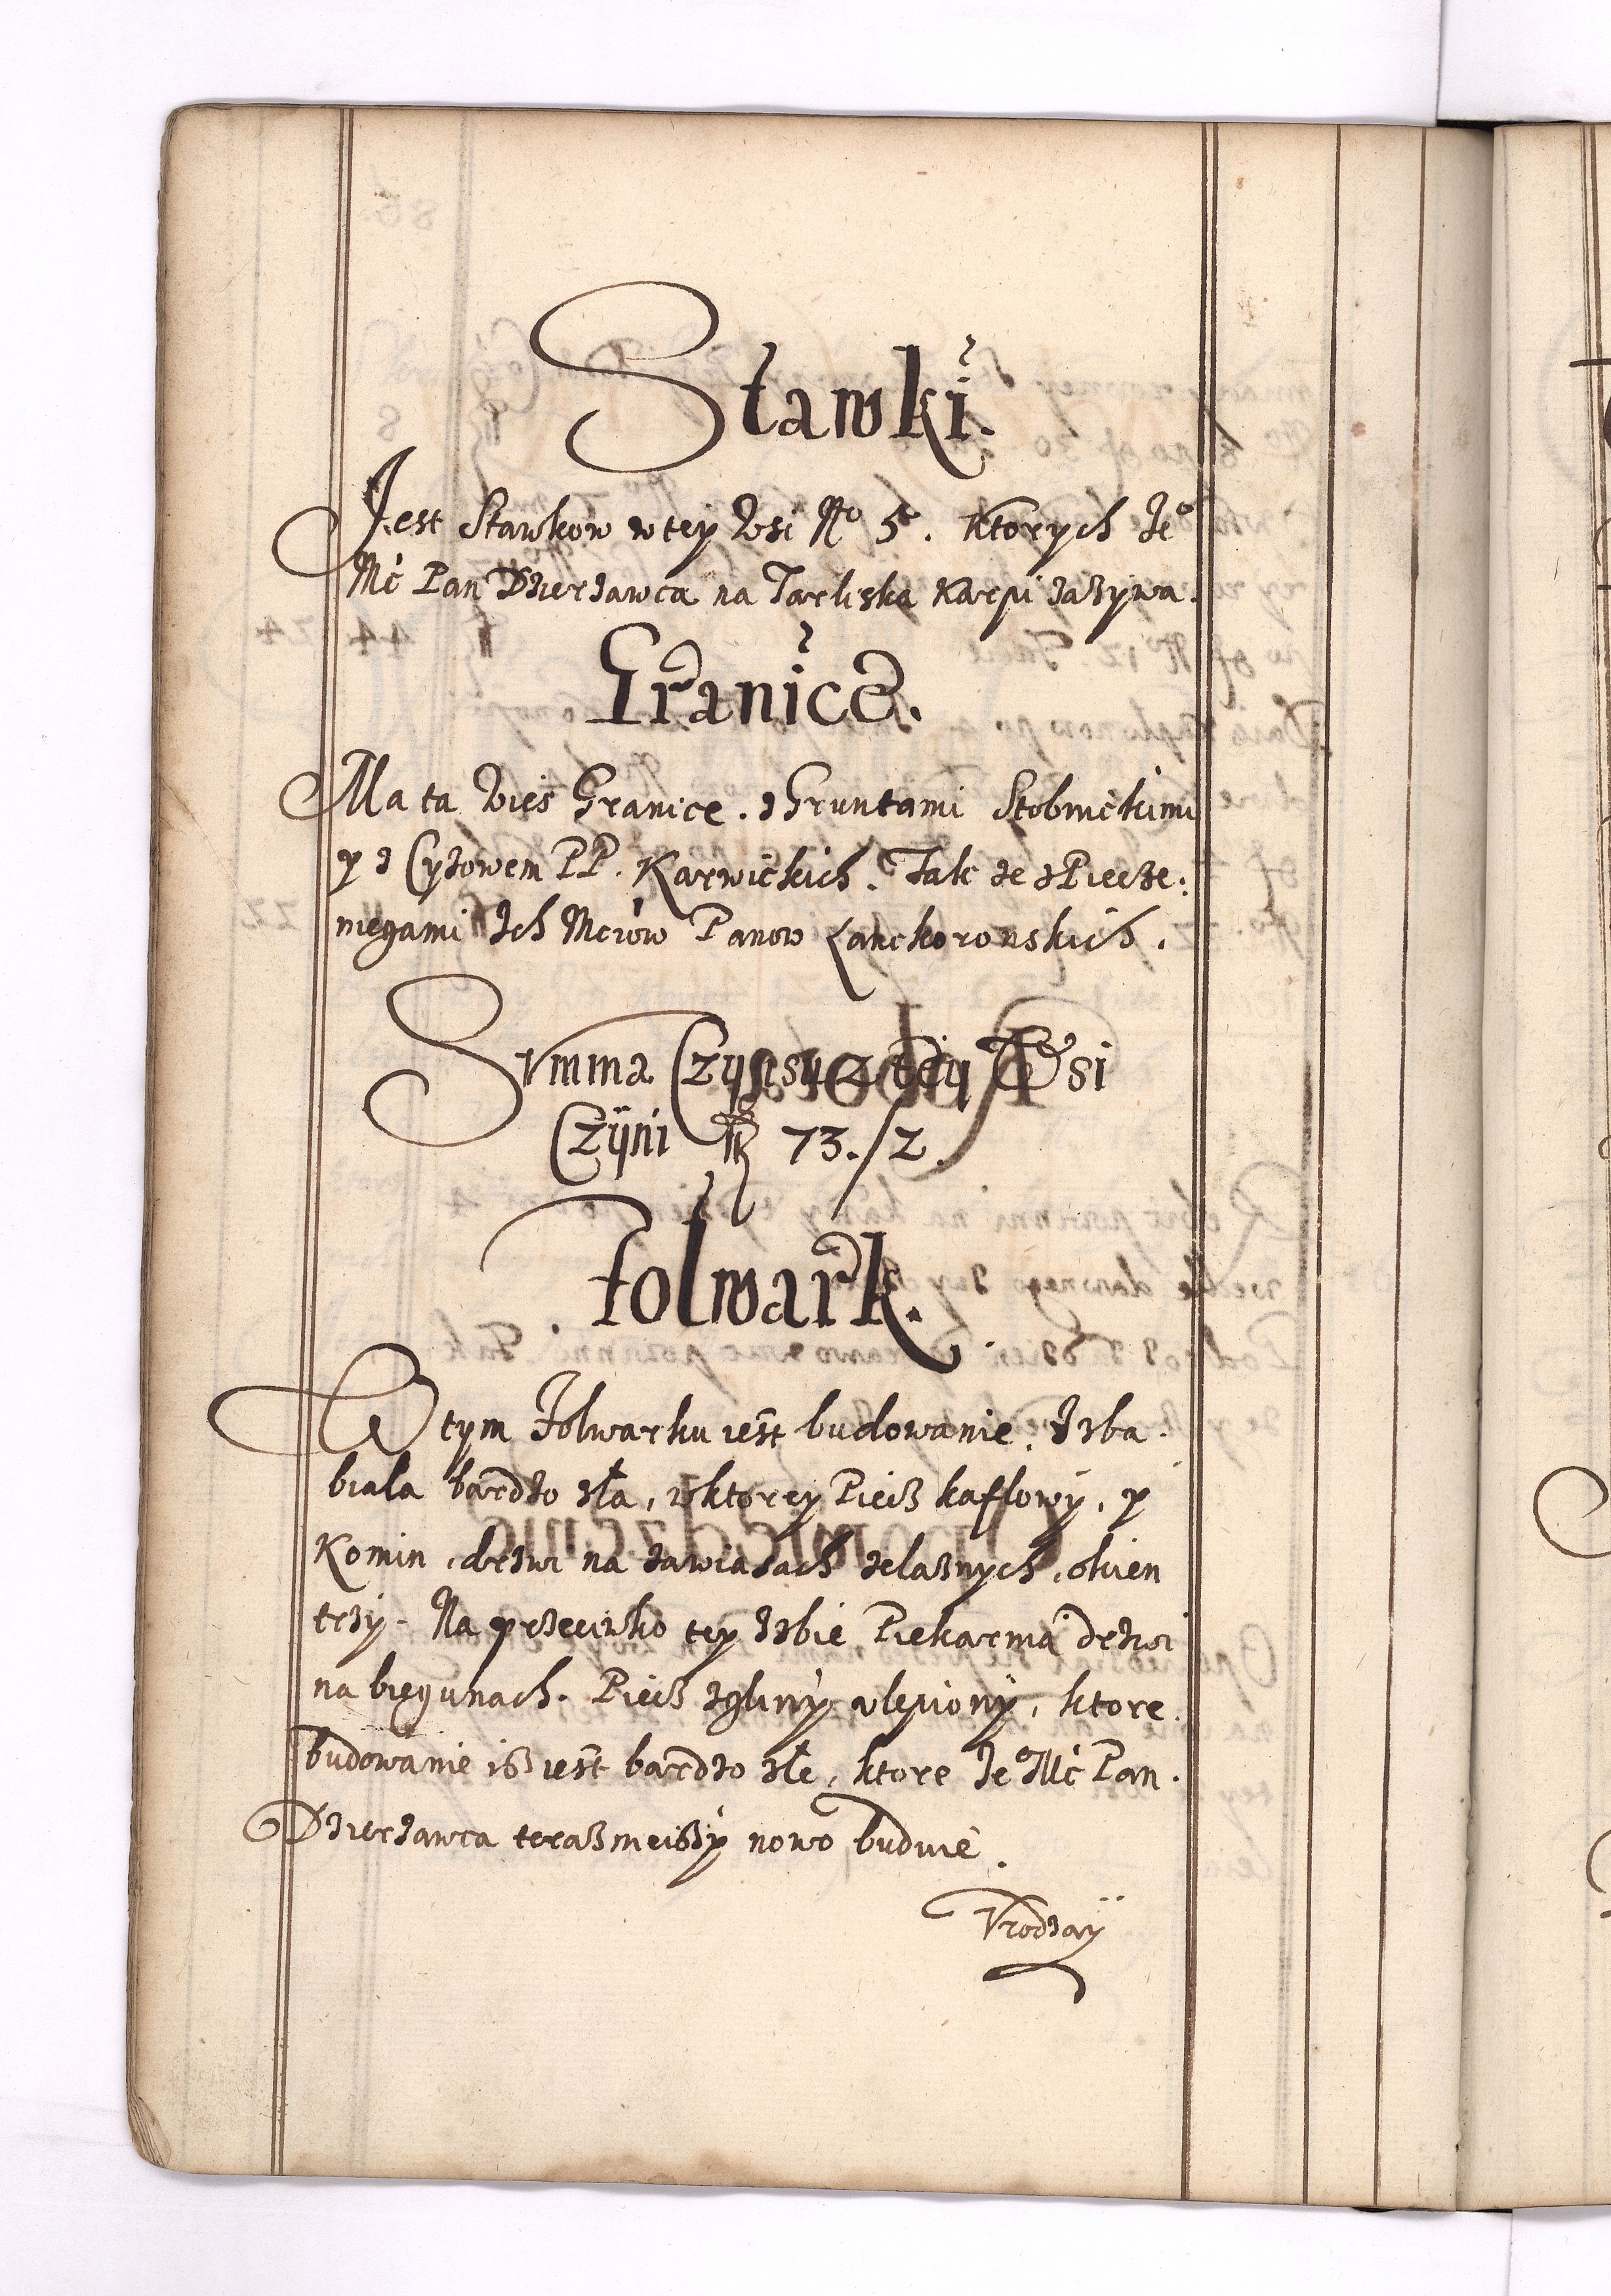 Stawki.
Jest Stawkow w tey Wsi No 5. Ktorych Jeo
Mć Pan Dzierzawca na Tarliska Karpi zażywa.
Granice.
Ma ta Wieś Granice. z Gruntami Stobnickimi
y z Cyzowem PP. Karwickich. Tak ze z Piecze:
niegami Ich Mciow Panow Lanckoronskich.
Summa Czynszu z tey Wsi
Czÿni fl 73./2.
Folwark.
W tym Folwarku iest budowanie. Izba
biala bardzo zła, w ktorey Piecz kaflowÿ, y
Komin, drzwi na zawiasach zelaznych, okien
trzÿ. Na przeciwko tey Izbie Piekarnia drzwi
na biegunach. Piecz z glinÿ ulepionÿ, ktore
budowanie isz iest bardzo złe, ktore Jeo Mć Pan
Dzierzawca teraznieiszy nowo buduie.
Vrodzaÿ